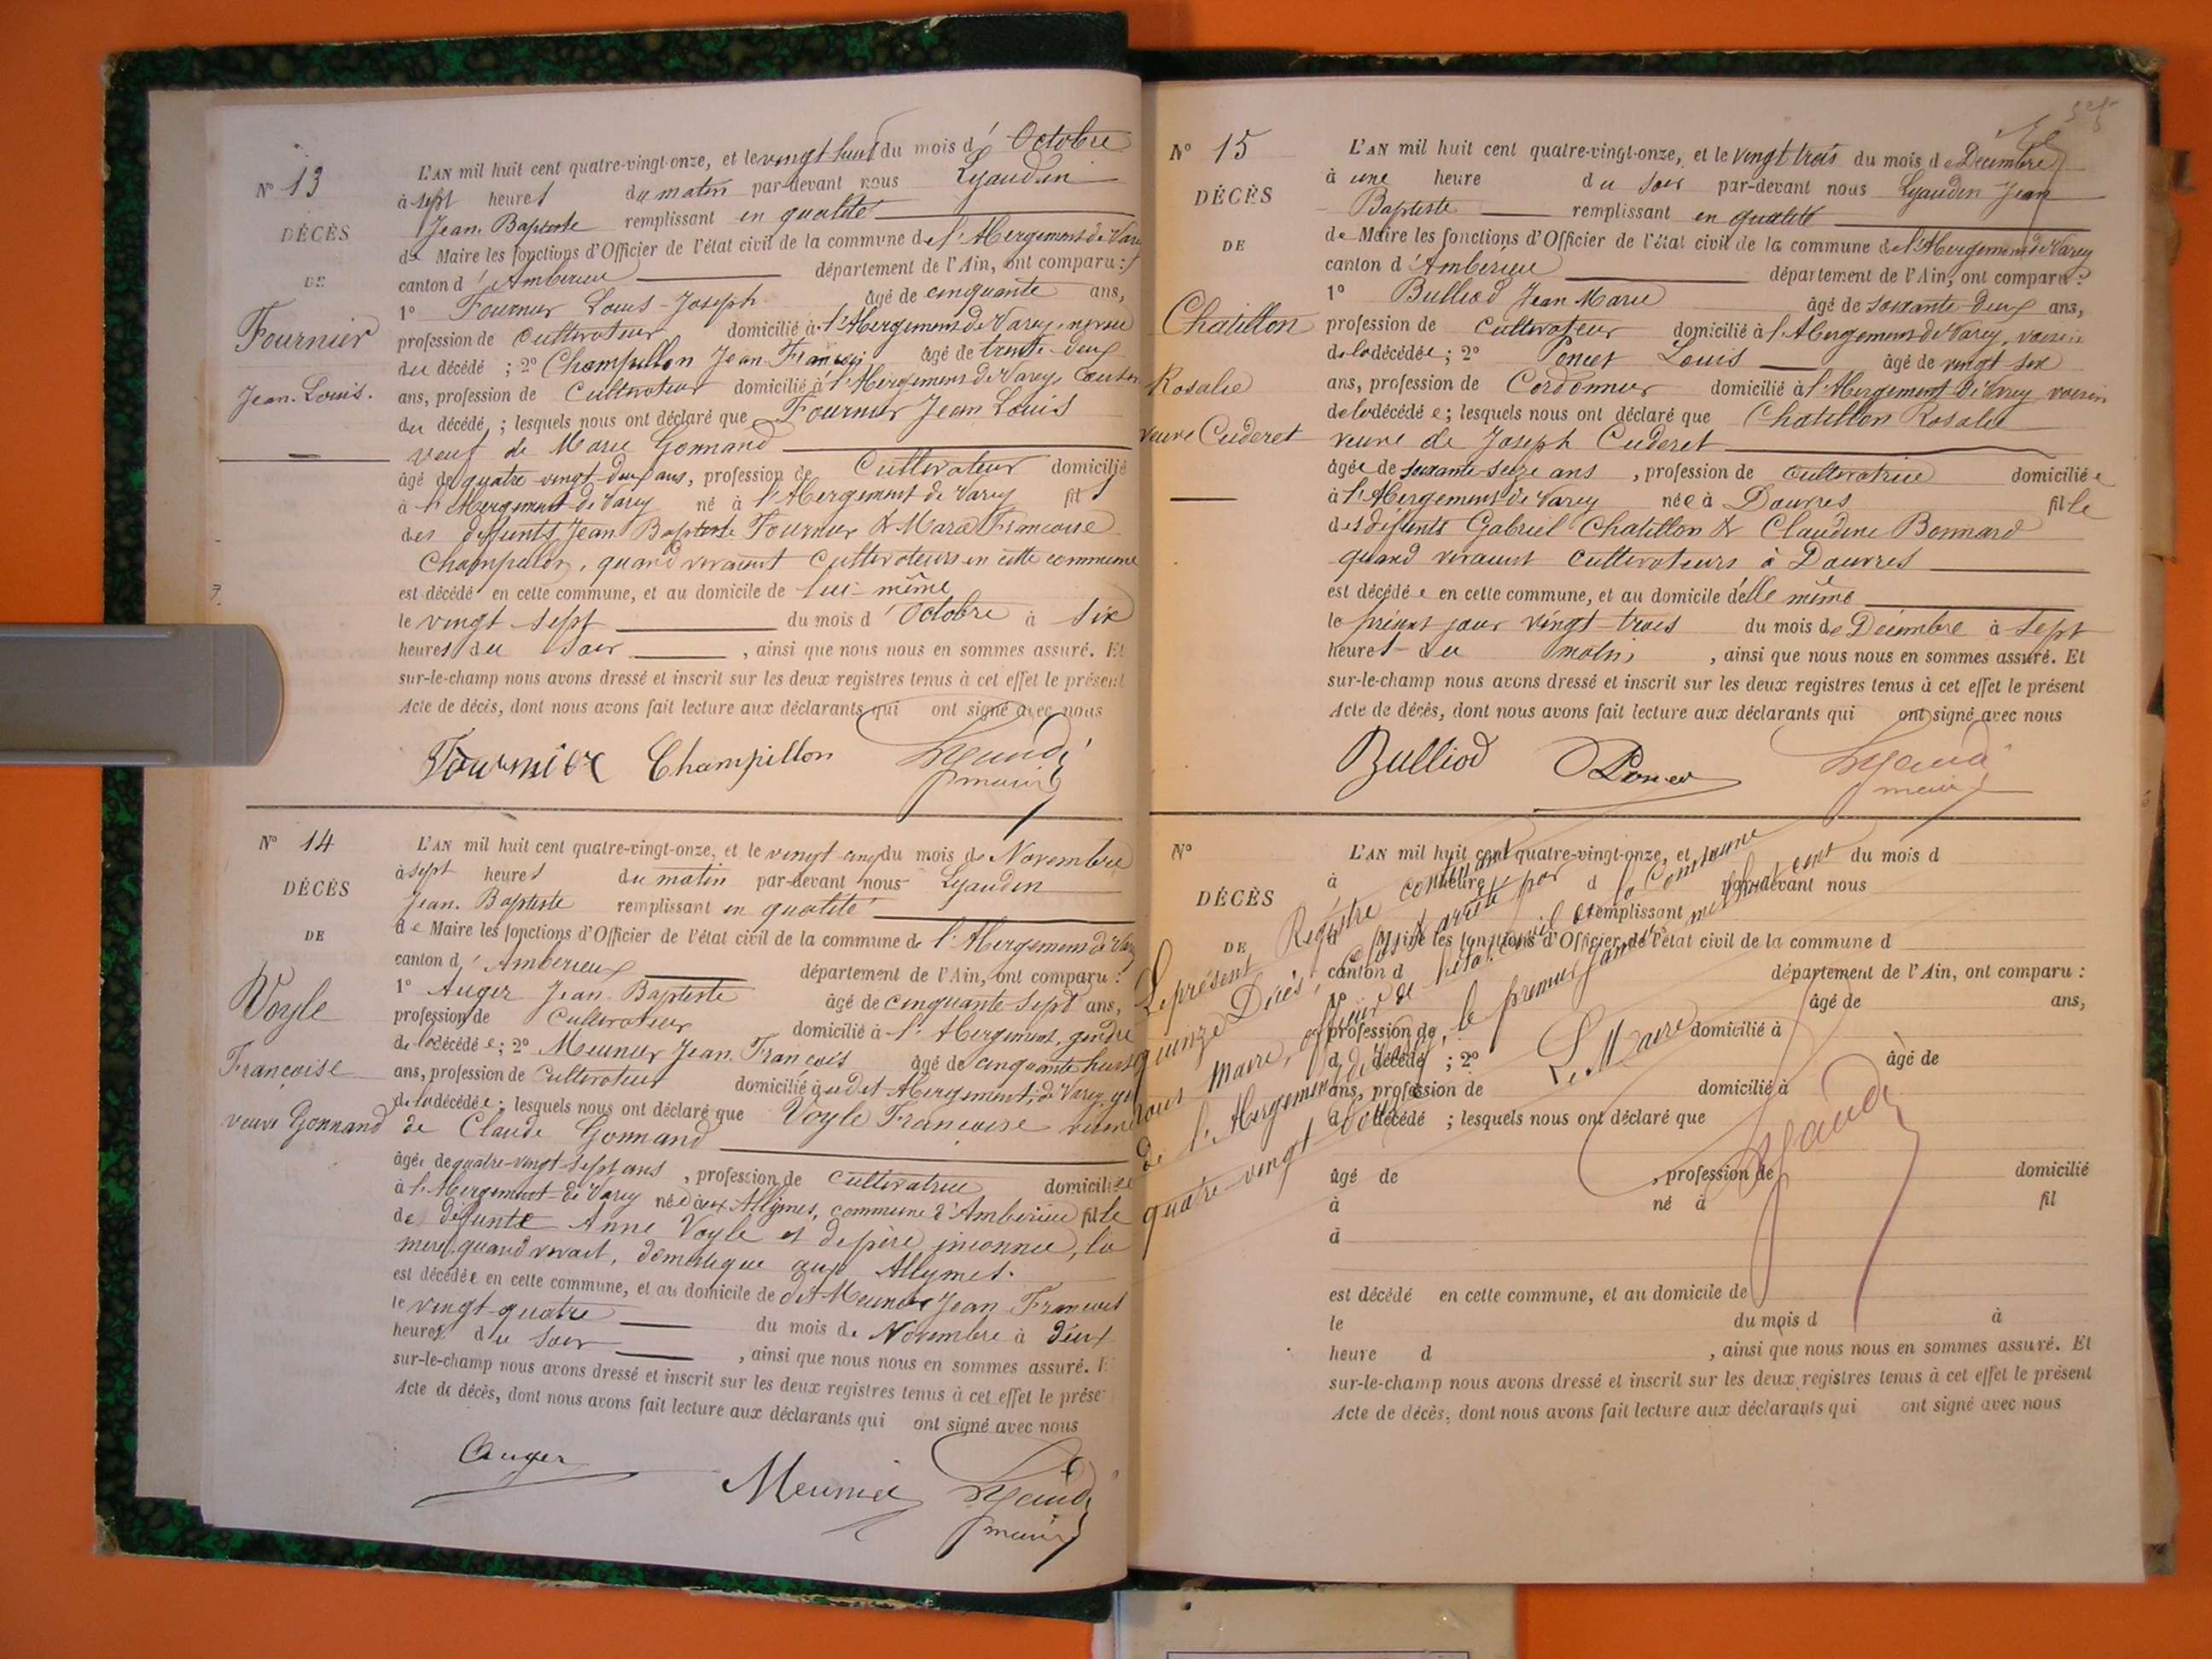 N° 13
DÉCÈS
DE
Fournier
Jean-Louis.
L'AN mil huit cent quatre-vingt-onze, et le vingt huit du mois d'Octobre
à sept heures du matin par-devant nous Lyaudin
Jean-Baptiste remplissant en qualité
de Maire les fonctions d'Officier de l'état civil de la commune de l'Abergement de Varey
canton d'Ambérieu département de l'Ain, ont comparu :
1° Fournier Louis-Joseph âgé de cinquante ans,
profession de cultivateur domicilié à l'Abergement de Varey, neveu
du décédé ; 2° Champillon Jean-François âgé de trente-deux
ans, profession de Cultivateur domicilié à l'Abergement de Varey, cousin
du décédé ; lesquels nous ont déclaré que Fournier Jean Louis
veuf de Marie Gonnand
âgé de quatre-vingt-deux ans, profession de Cultivateur domicilié
à l'Abergement de Varey né à l'Abergement de Varey fil s
des défunts Jean Baptiste Fournier & Marie Françoise
Champillon, quand vivaient cultivateurs en cette commune
est décédé en cette commune, et au domicile de lui-même
le vingt-sept du mois d'Octobre à six
heures du soir , ainsi que nous nous en sommes assuré. Et
sur-le-champ nous avons dressé et inscrit sur les deux registres tenus à cet effet le présent
Acte de décès, dont nous avons fait lecture aux déclarants qui ont signé avec nous
Fournier Champillon Lyaudin
maire
N° 14
DÉCÈS
DE
Voyle
Françoise
veuve Gonnand
L'AN mil huit cent quatre-vingt-onze, et le vingt cinq du mois de Novembre
à sept heures du matin par-devant nous Lyaudin
Jean-Baptiste remplissant en qualité
de Maire les fonctions d'Officier de l'état civil de la commune de l'Abergement de Varey
canton d'Ambérieu département de l'Ain, ont comparu :
1° Auger Jean-Baptiste âgé de cinquante sept ans,
profession de Cultivateur domicilié à l'Abergement, gendre
de la décédée ; 2° Meunier Jean-François âgé de cinquante huit
ans, profession de Cultivateur domicilié à udit Abergement de Varey, g
de la décédée ; lesquels nous ont déclaré que Voyle Françoise veuve
de Claude Gonnand
âgée de quatre-vingt-sept ans , profession de cultivatrice domiciliée
à l'Abergement de Varey née aux Allymes, commune d'Ambérieu fille
de défunte Anne Voyle et de père inconnu, la
mère, quand vivait, domestique aux Allymes.
est décédée en cette commune, et au domicile de dit Meunier Jean-François
le vingt-quatre du mois de Novembre à deux
heures du soir , ainsi que nous nous en sommes assuré. E
sur-le-champ nous avons dressé et inscrit sur les deux registres tenus à cet effet le prése
Acte de décès, dont nous avons fait lecture aux déclarants qui ont signé avec nous
Auger Meunier Lyaudin
maire
N° 15
DÉCÈS
DE
Chatillon
Rosalie
veuve Cuderet
L'AN mil huit cent quatre-vingt-onze, et le vingt trois du mois de Décembre
à une heure du soir par-devant nous Lyaudin Jean
Baptiste remplissant en qualité
de Maire les fonctions d'Officier de l'état civil de la commune de l'Abergement de Varey
canton d'Ambérieu département de l'Ain, ont comparu :
1° Bulliod Jean Marie âgé de soixante-deux ans,
profession de cultivateur domicilié à l'Abergement de Varey, voisin
de la décédée ; 2° Poncet Louis âgé de vingt six
ans, profession de Cordonnier domicilié à l'Abergement de Varey voisin
de la décédée ; lesquels nous ont déclaré que Chatillon Rosalie
veuve de Joseph Cuderet
âgée de soixante-seize ans , profession de cultivatrice domiciliée
à l'Abergement de Varey née à Douvres fille
des défunts Gabriel Chatillon & Claudine Bonnard
quand vivaient cultivateurs à Douvres
est décédée en cette commune, et au domicile d'elle même
le présent jour vingt-trois du mois de Décembre à sept
heures du matin , ainsi que nous nous en sommes assuré. Et
sur-le-champ nous avons dressé et inscrit sur les deux registres tenus à cet effet le présent
Acte de décès, dont nous avons fait lecture aux déclarants qui ont signé avec nous
Bulliod Poncet Lyaudin
maire
N°
DÉCÈS
DE
L'AN mil huit cent quatre-vingt-onze, et du mois d
à heure d par-devant nous
remplissant
d Maire les fonctions d'Officier de l'état civil de la commune d
canton d département de l'Ain, ont comparu :
1° âgé de ans,
profession de domicilié à
d décédé ; 2° âgé de
ans, profession de domicilié à
d décédé ; lesquels nous ont déclaré que
âgé de , profession de domicilié
à né à fil
d
est décédé en cette commune, et au domicile de
le du mois d à
heure d , ainsi que nous nous en sommes assuré. Et
sur-le-champ nous avons dressé et inscrit sur les deux registres tenus à cet effet le présent
Acte de décès, dont nous avons fait lecture aux déclarants qui ont signé avec nous
Le présent Registre contenant
quinze Décès, clos & arrêté par
nous Maire, officier de l'état civil de la Commune
de l'Abergement de Varey, le premier janvier mil huit cent
quatre-vingt douze
Le Maire
Lyaudin